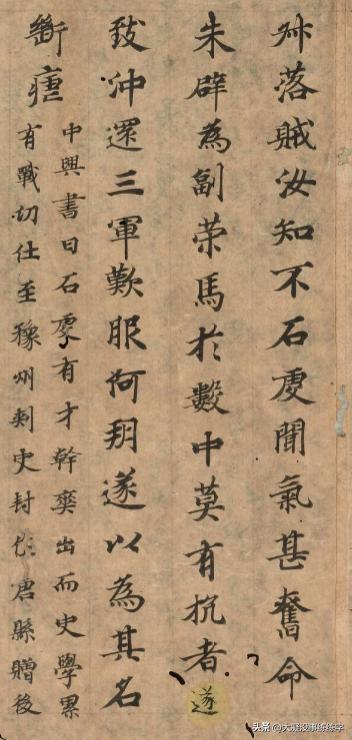 叔落賊汝知不石虔聞氣甚奮命
朱辟為副策馬於數中莫有抗者遂
致沖還三軍歎服何朔遂以為其名
斷瘧
中興書曰石虔有才幹出而史學累
有戰功仕至豫州刺史封作唐縣贈後
头条 @没事练练字